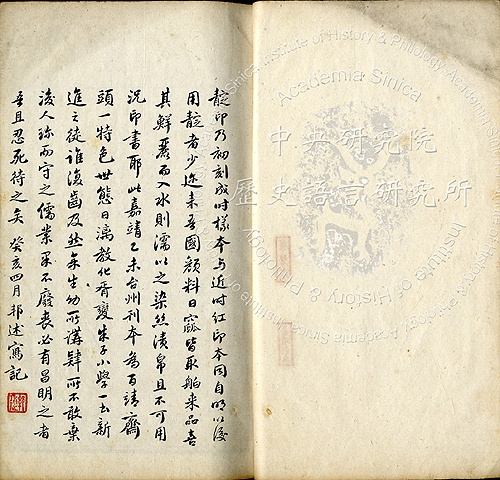 靛印乃初刻成時樣本與近時紅印本同自明以後
用靛者少近來吾國顏料日窳皆取舶來品喜
其鮮麗而入水則濡以之染絲漬帛且不可用
況印書耶此嘉靖乙未台州刊本為百靖齋
頭一特色世態日漓教化胥變朱子小學一去新
進之徒誰復齒及然余生幼所講肄所不敢棄
後人珍而守之儒業果不廢喪必有昌明之者
吾且忍死待之矣 癸亥四月邦述寫記
中央研究院
歷史語言研究所
Academia Sinica
Institute of History & Philology